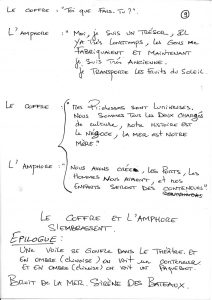 LE COFFRE : "TOI QUE FAIS-TU ?".
9
L'AMPHORE : "MOI, JE SUIS UN TRÉSOR, IL
Y A TRÈS LONGTEMPS, LES GENS ME
FABRIQUAIENT ET MAINTENANT
JE SUIS TRÈS ANCIENNE.
JE TRANSPORTE LES FRUITS DU SOLEIL
LE COFFRE : "TES RICHESSES SONT LUMINEUSES.
NOUS SOMMES TOUS LES DEUX CHARGÉS
DE CULTURE, NOTRE HISTOIRE EST
LE NÉGOCE, LA MER EST NOTRE
MÈRE."
L'AMPHORE : "NOUS AVONS CRÉÉ LES PORTS, LES
HOMMES NOUS AIMENT, ET NOS
ENFANTS SERONT DES CONTENEURS"
LE COFFRE ET L'AMPHORE
S'EMBRASSENT.
EPILOGUE :
UNE VOILE SE GONFLE DANS LE THÉÂTRE. ET
EN OMBRE (CHINOISE) ON VOIT UN CONTENEUR
ET EN OMBRE (CHINOISE) ON VOIT UN PAQUEBOT.
BRUIT DE LA MER. SIRÈNE DES BATEAUX.